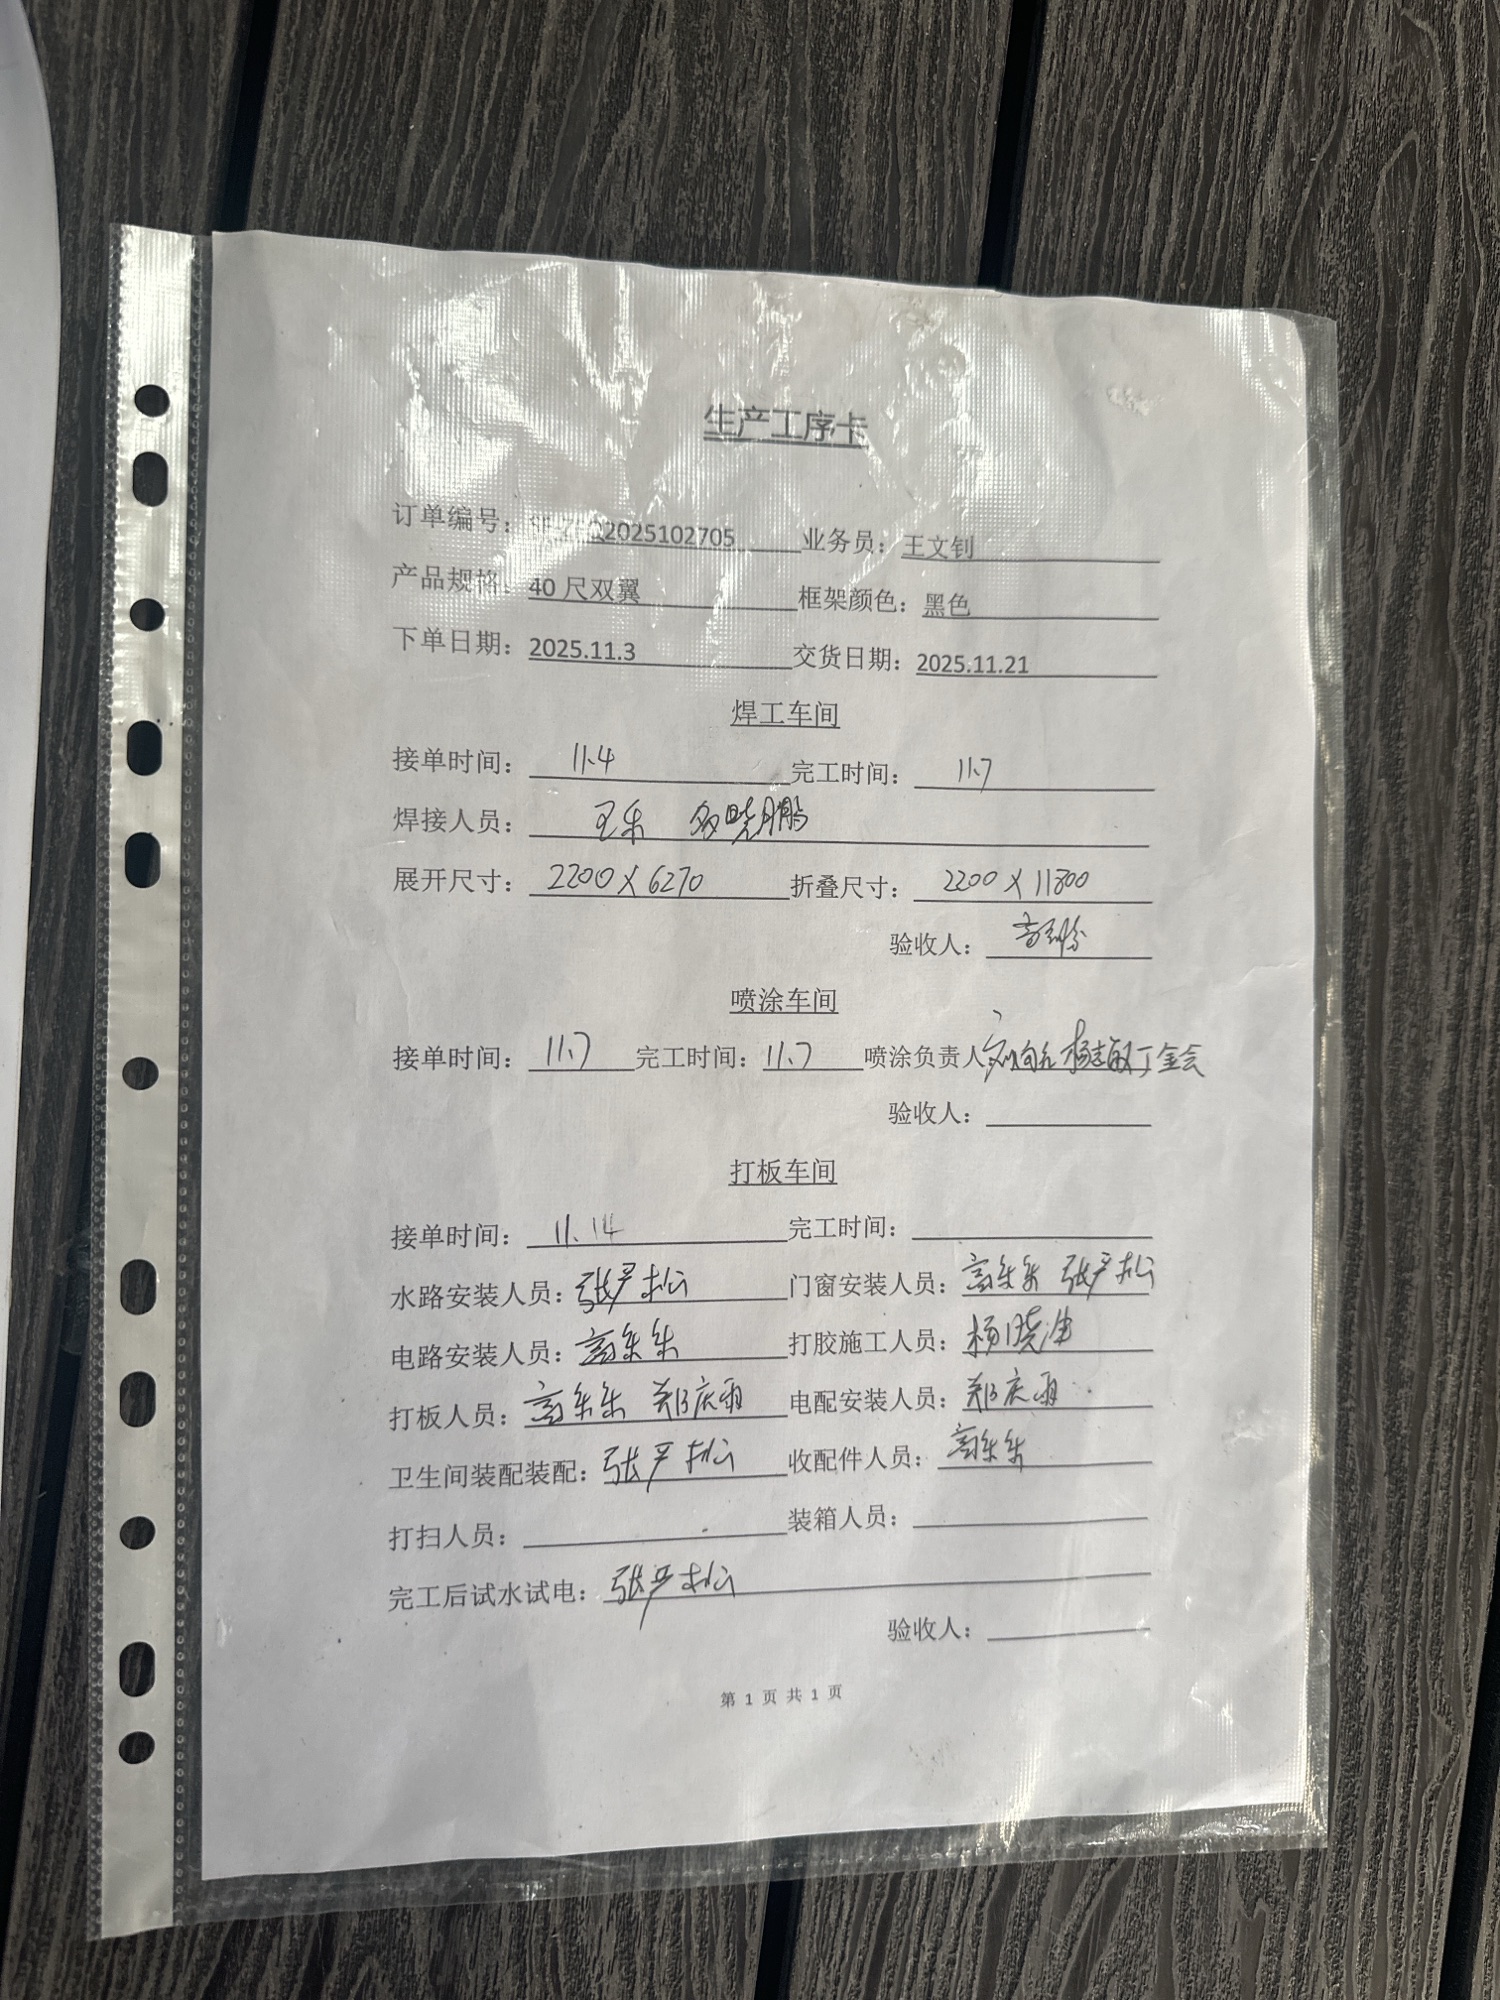 生产工序卡
订单编号：2025102705 业务员：王文钊
产品规格：40 尺双翼 框架颜色：黑色
下单日期：2025.11.3 交货日期：2025.11.21
焊工车间
接单时间：11.4 完工时间：11.7
焊接人员：王乐 晓鹏
展开尺寸：2200X6270 折叠尺寸：2200X11800
验收人：
喷涂车间
接单时间：11.7 完工时间：11.7 喷涂负责人 杨志敏 丁金会
验收人：
打板车间
接单时间：11.14 完工时间：
水路安装人员：张严松 门窗安装人员：高乐乐 张严松
电路安装人员：高乐乐 打胶施工人员：杨晓
打板人员：高乐乐 郑庆雨 电配安装人员：郑庆雨
卫生间装配装配：张严松 收配件人员：高乐乐
打扫人员： 装箱人员：
完工后试水试电：张严松
验收人：
第 1 页 共 1 页